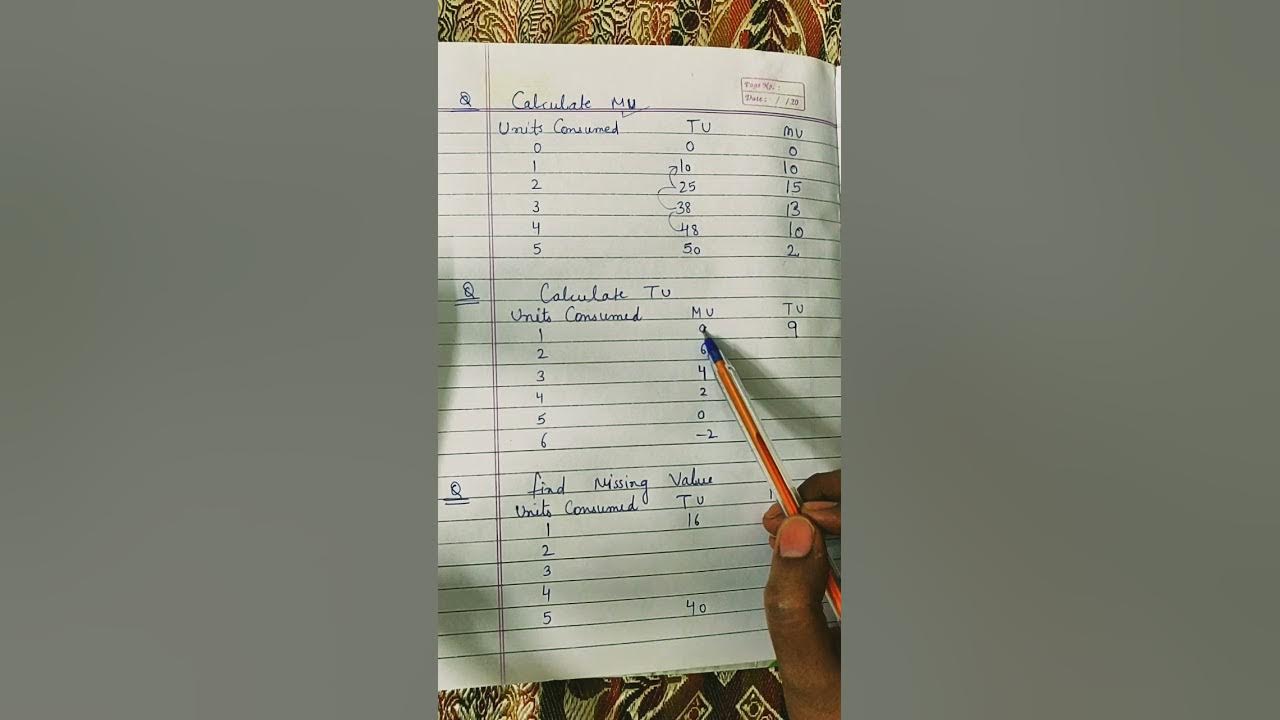 Page No.:
Date: / /20
Q Calculate MU
Units Consumed TU MU
0 0 0
1 10 10
2 25 15
3 38 13
4 48 10
5 50 2
Q Calculate TU
Units Consumed MU TU
1 9 9
2 6
3 4
4 2
5 0
6 -2
Q find Missing Value
Units Consumed TU
1 16
2
3
4
5 40